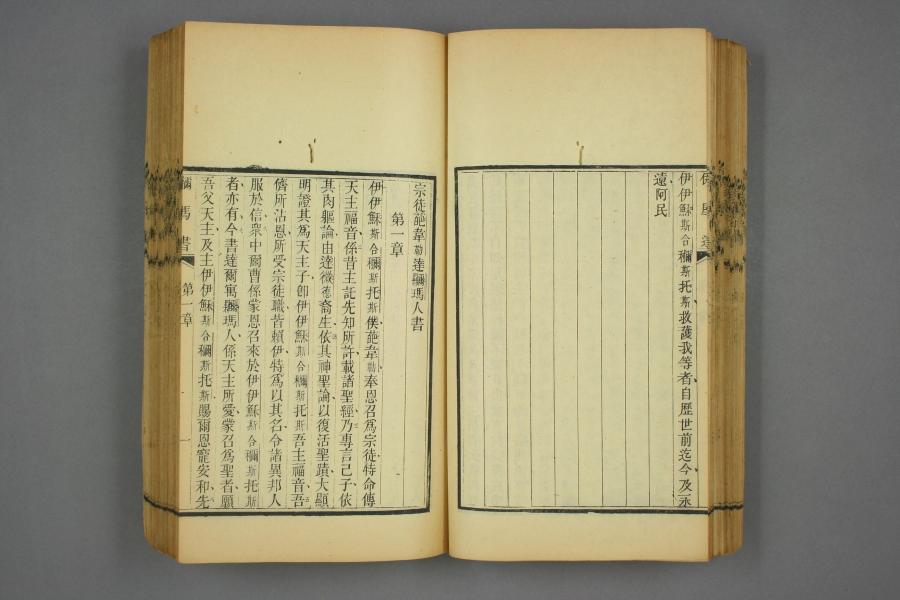 伊伊穌斯合穪斯托斯救護我等者自歷世前迄今及永
遠阿民
宗徒葩韋勒達羅瑪人書
第一章
伊伊穌斯合穪斯托斯僕葩韋勒奉恩召為宗徒特命傳
天主福音係昔主託先知所許載諸聖經乃專言己子依
其肉軀論由達微德裔生依其神聖論以復活聖蹟大顯
明證其為天主子卽伊伊穌斯合穪斯托斯吾主福音吾
儕所沾恩所受宗徒職皆賴伊特為以其名令諸異邦人
服於信眾中爾曹係蒙恩召來於伊伊穌斯合穪斯托斯
者亦有今書達爾寓羅瑪人係天主所愛蒙召為聖者願
吾父天主及主伊伊穌斯合穪斯托斯賜爾恩寵安和先
瑪書
第一章
一